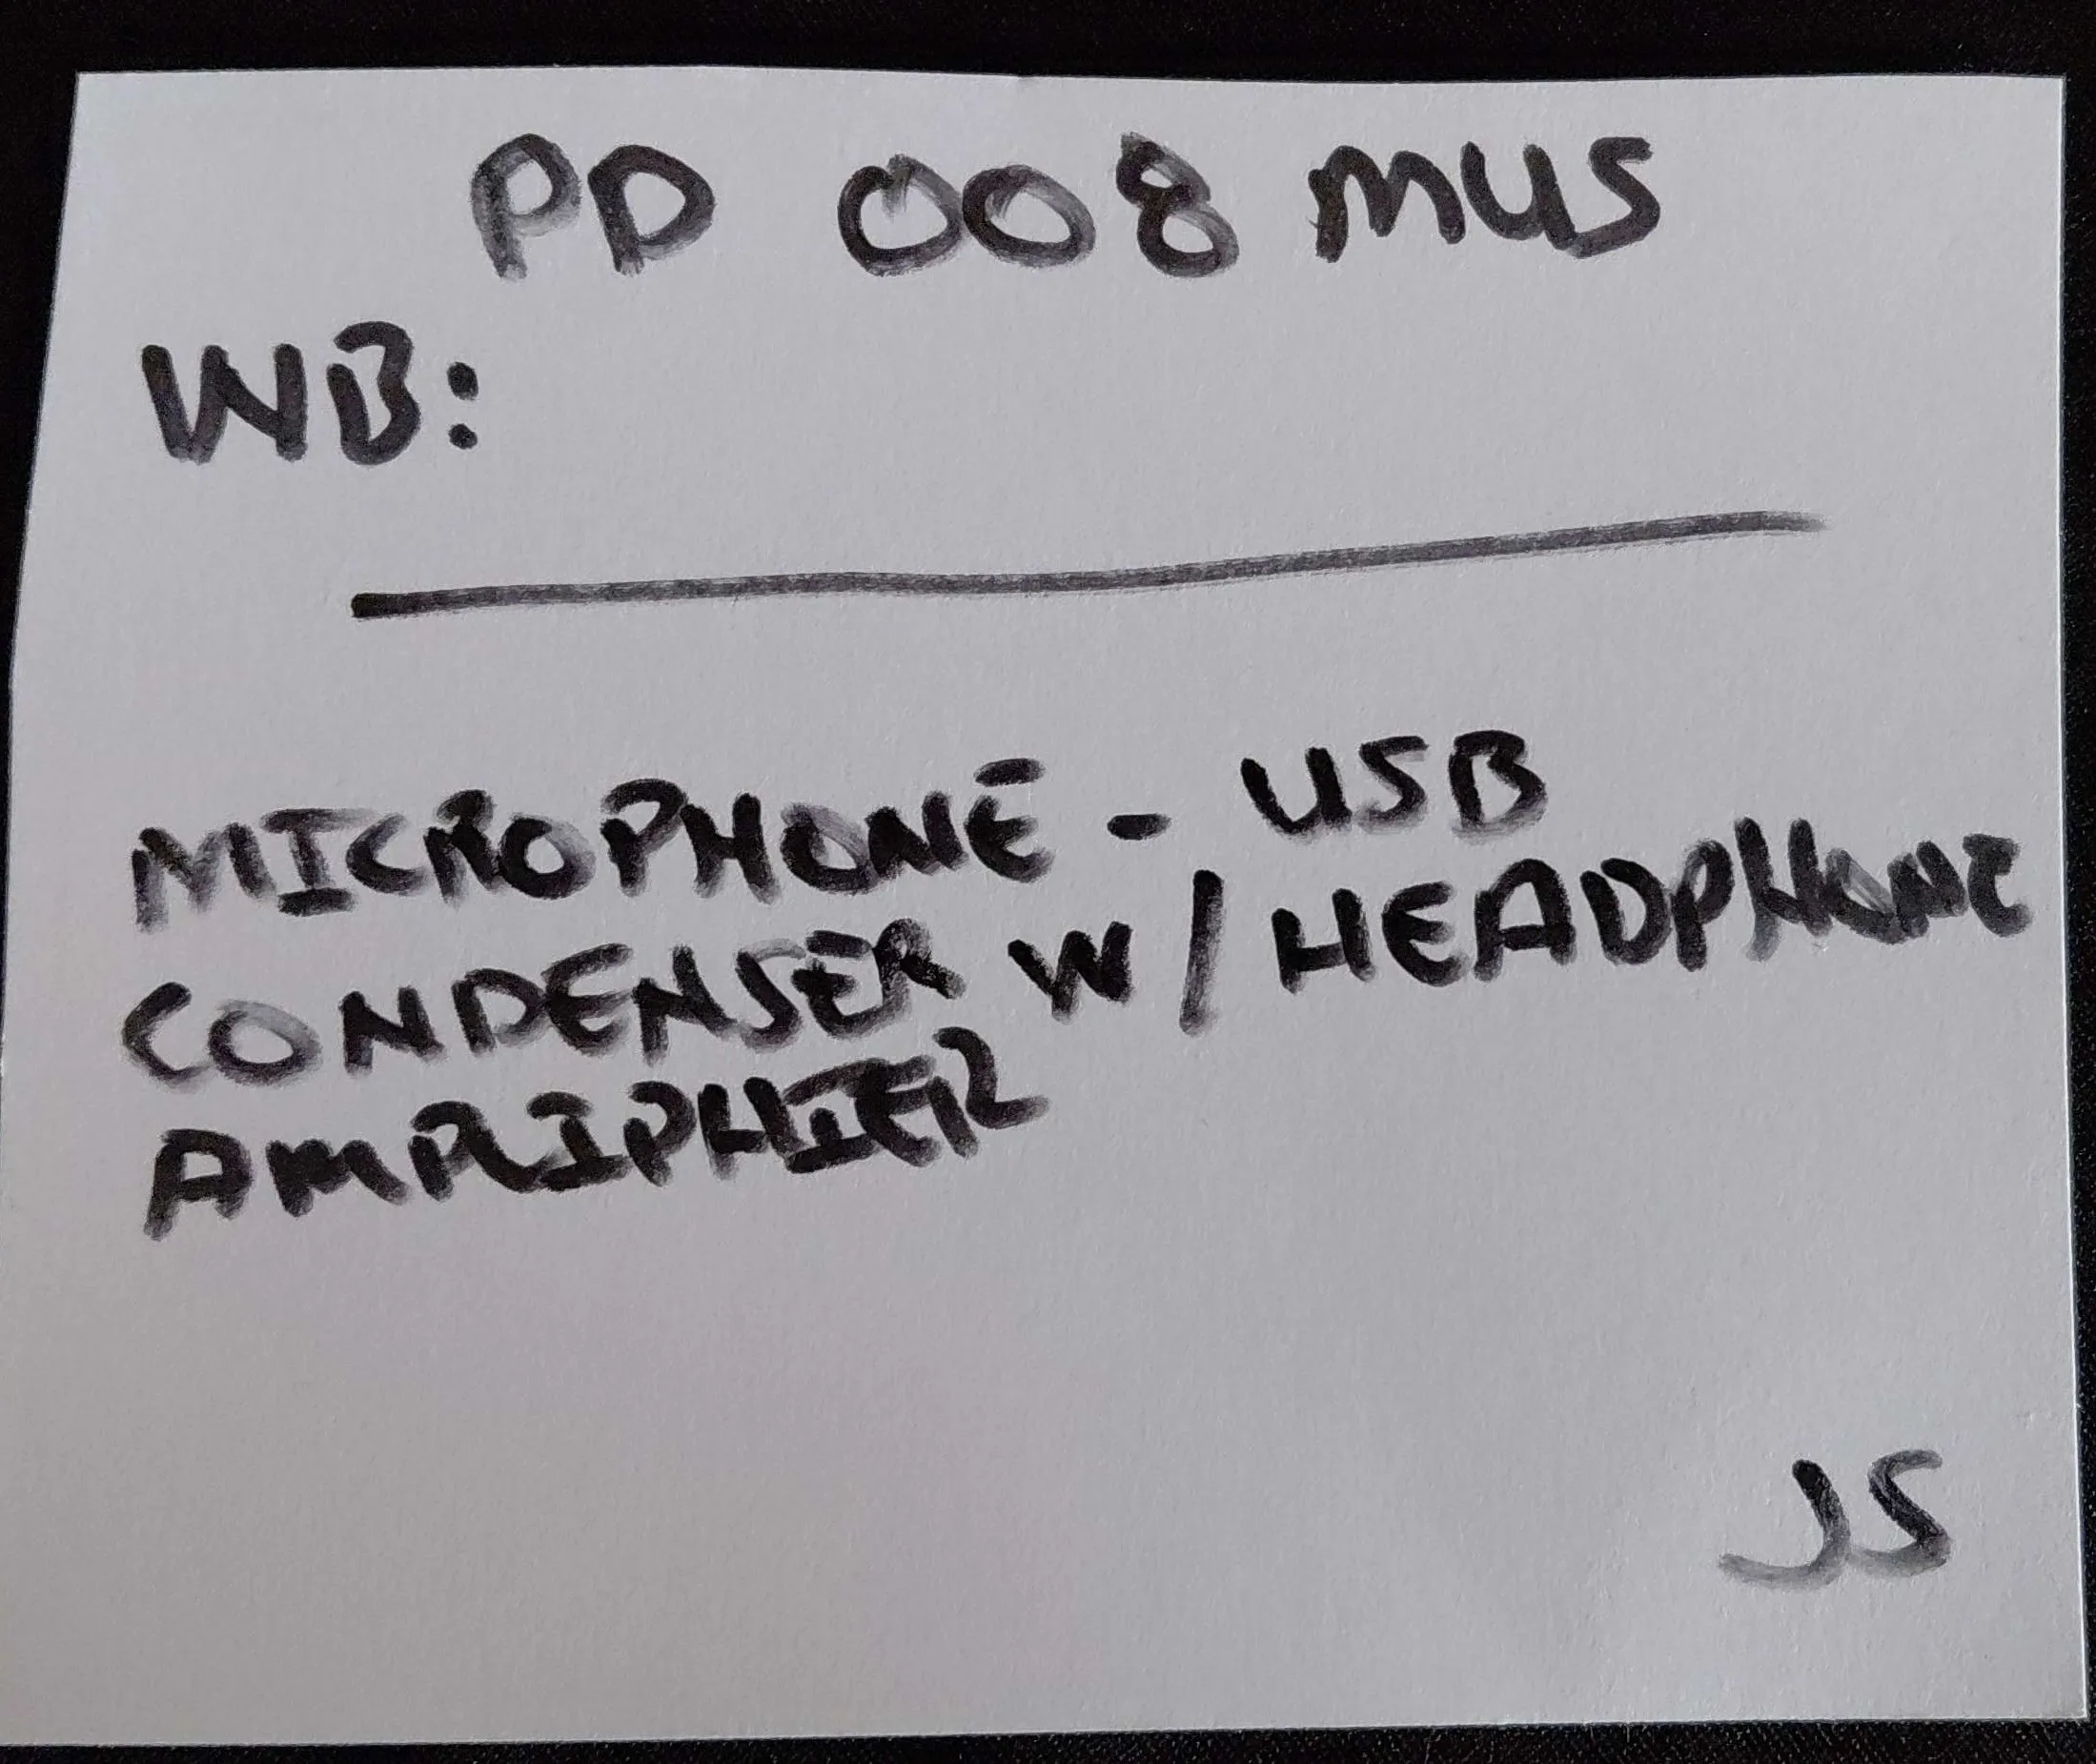 PD 008 MUS
WB:
MICROPHONE - USB
CONDENSER W/HEADPHONE
AMPLIPHIER
JS